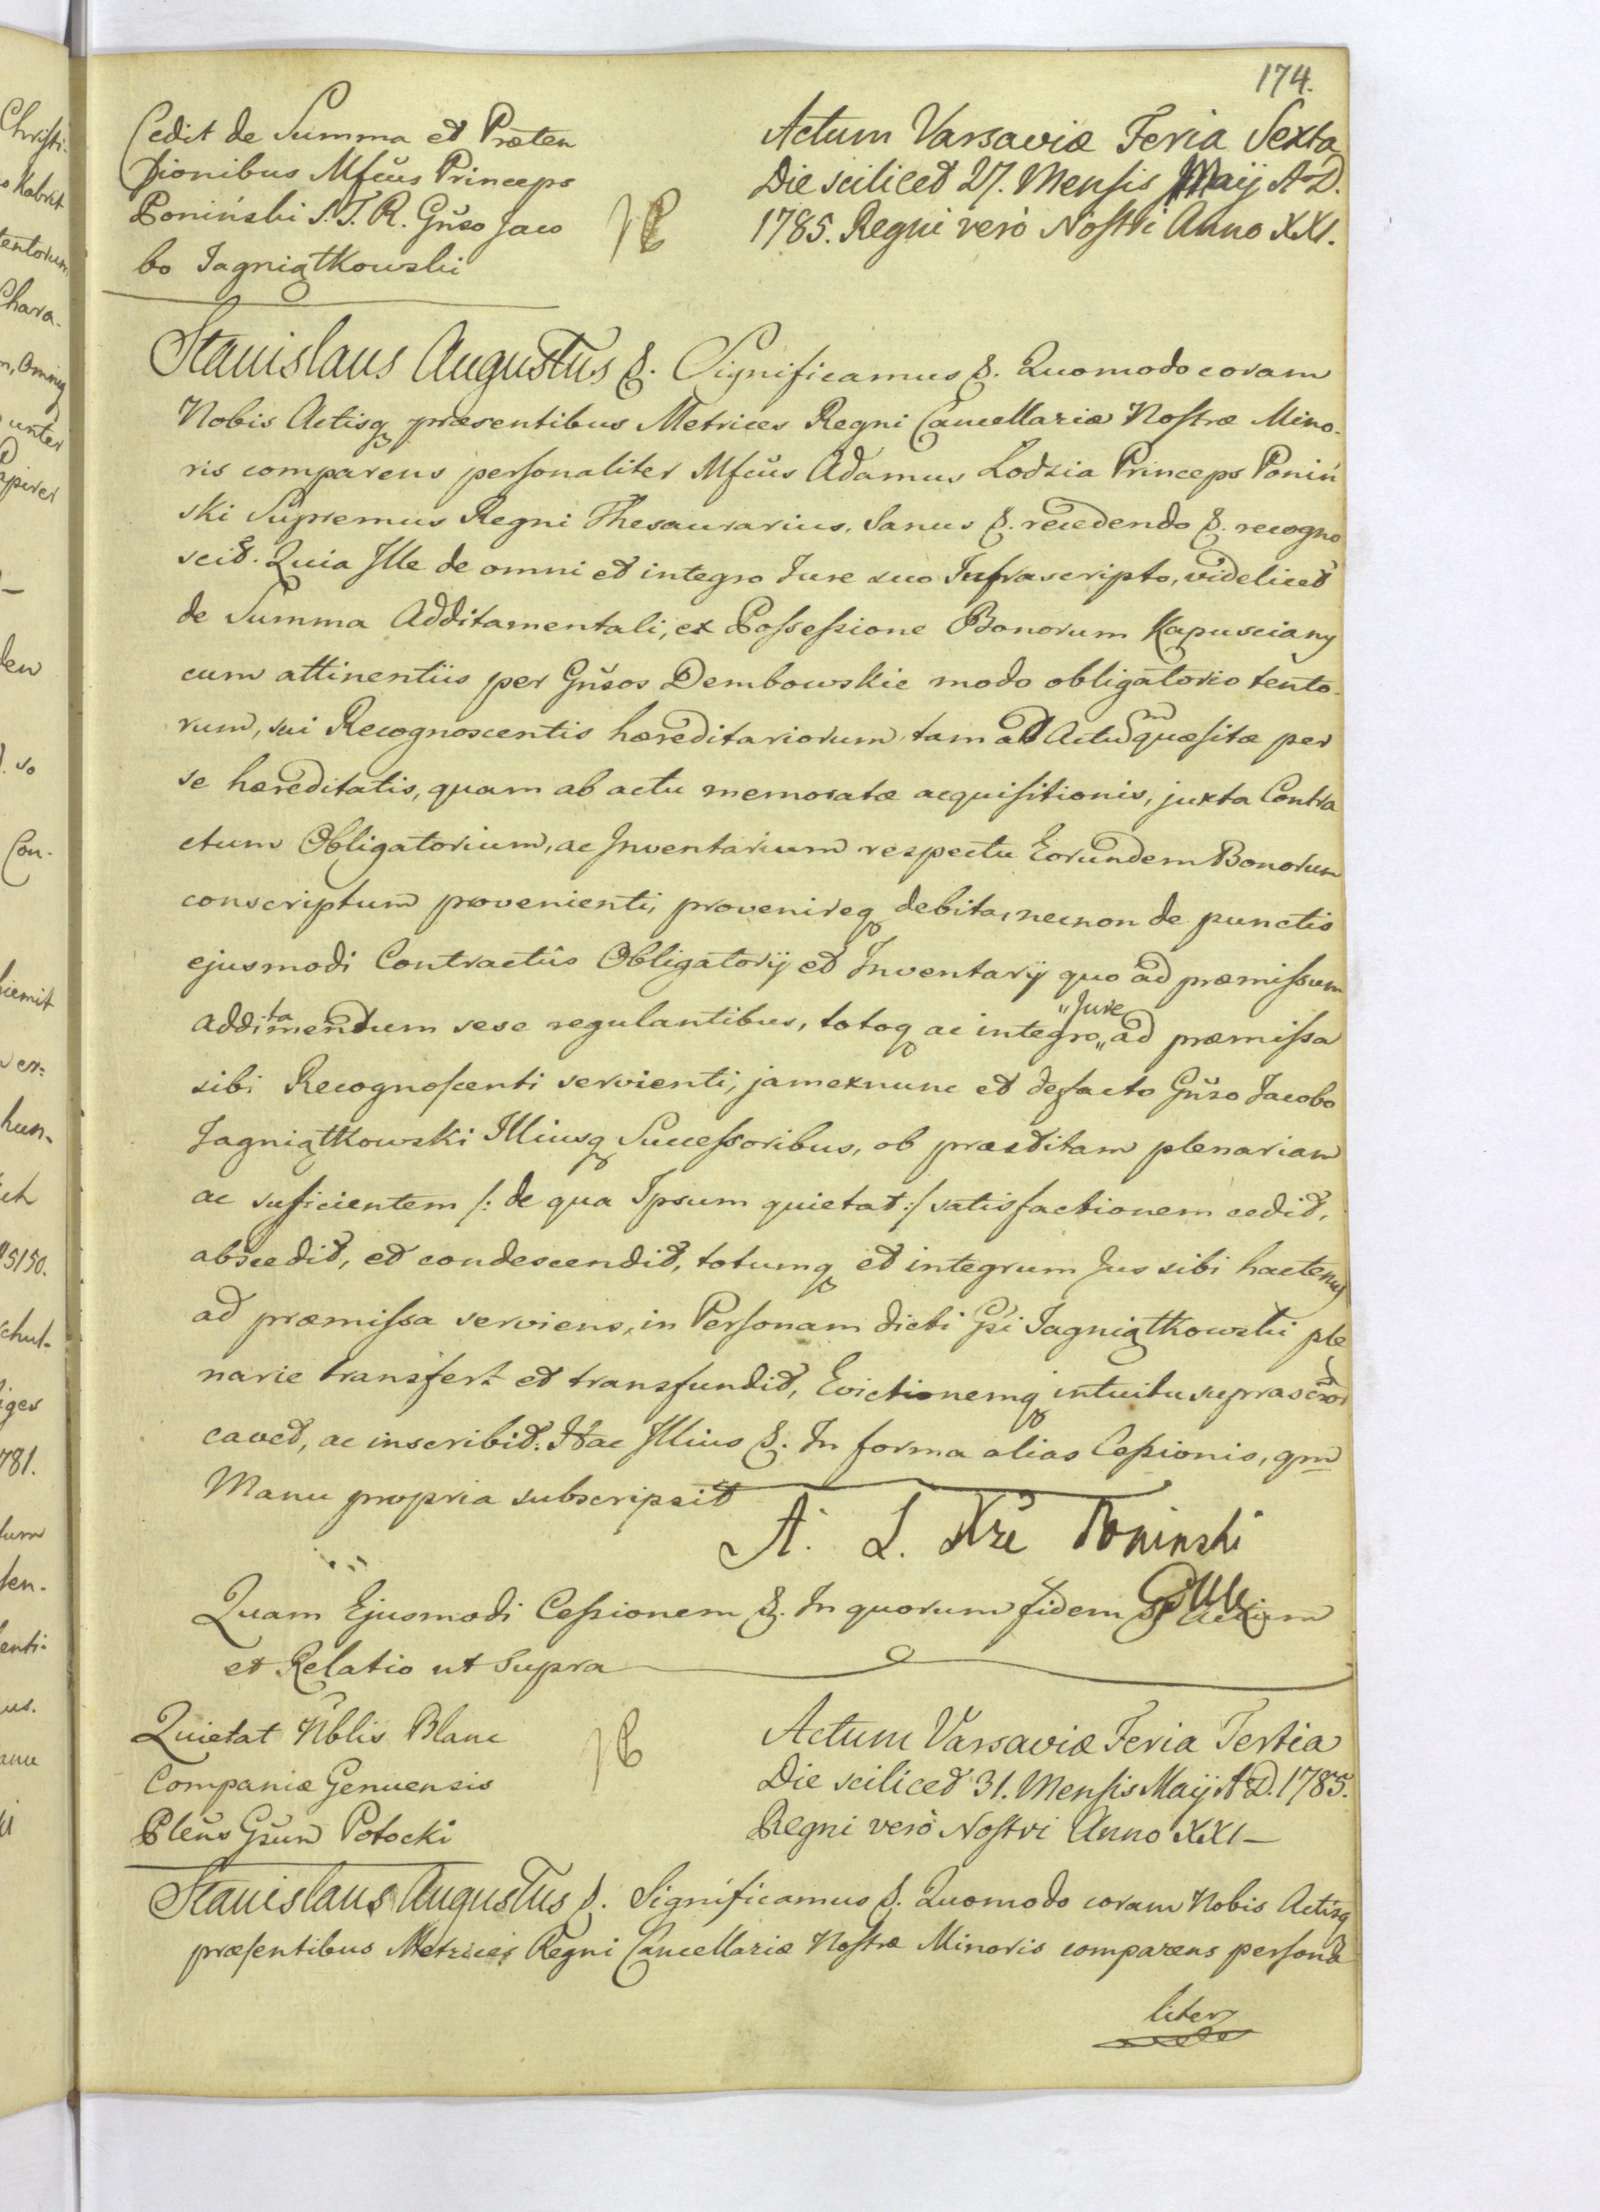 174.
Cedit de Summa et Præten
sionibus Mfcus Princeps
Poniński S. T. R. Gnso Jaco
bo Jagniątkowski
Actum Varsaviæ Feria Sexta
Die scilicet 27. Mensis Maij A. D.
1785. Regni verò Nostri Anno XXI.
Stanislaus Augustus &. Significamus &. Quomodo coram
Nobis Actisq præsentibus Metrices Regni Cancellariæ Nostræ Mino-
ris comparens personaliter Mfcus Adamus Lodzia Princeps Poniń
ski Supremus Regni Thesaurarius, Sanus &. recedendo &. recogno
scit. Quia Ille de omni et integro Jure suo Infrascripto, videlicet
de Summa Additamentali, ex Possessione Bonorum Kapusciany
cum attinentiis per Gnsos Dembowskie modo obligatorio tento-
rum, sui Recognoscentis hæreditariorum tam ad Actum quæsitæ per
se hæreditatis, quam ab actu memoratæ acquisitionis, juxta Contra
ctum Obligatorium, ac Inventarium respectu Eorundem Bonorum
conscriptum provenienti, provenireq debita, necnon de punctis
ejusmodi Contractûs Obligatorij et Inventarij quo ad præmissum
additamentum sese regulantibus, totoq ac integro "Jure" ad præmissa
sibi Recognoscenti servienti, jam exnunc et defacto Gnso Jacobo
Jagniątkowski Illiusq Successoribus, ob præstitam plenariam
ac suficientem /: de qua Ipsum quietat :/ satisfactionem cedit,
abscedit, et condescendit, totumq et integrum Jus sibi hactenus
ad præmissa serviens, in Personam dicti Gsi Jagniątkowski ple
narie transfert et transfundit, Evictionemq intuitu suprascror
cavet, ac inscribit. Hac Illius &. In forma alias Cessionis, qm
Manu propria subscripsit
A. L. Xże Poninski
Quam Ejusmodi Cessionem &. In quorum fidem &
et Relatio ut Supra
Quietat Nblis Blanc
Companiæ Genuensis
Plēns Gsum Potocki
Actum Varsaviæ Feria Tertia
Die scilicet 31. Mensis Maij A. D. 1785.
Regni verò Nostri Anno XXI
Stanislaus Augustus &. Significamus &. Quomodo coram Nobis Actisq
præsentibus Metrices Regni Cancellariæ Nostræ Minoris comparens persona
liter